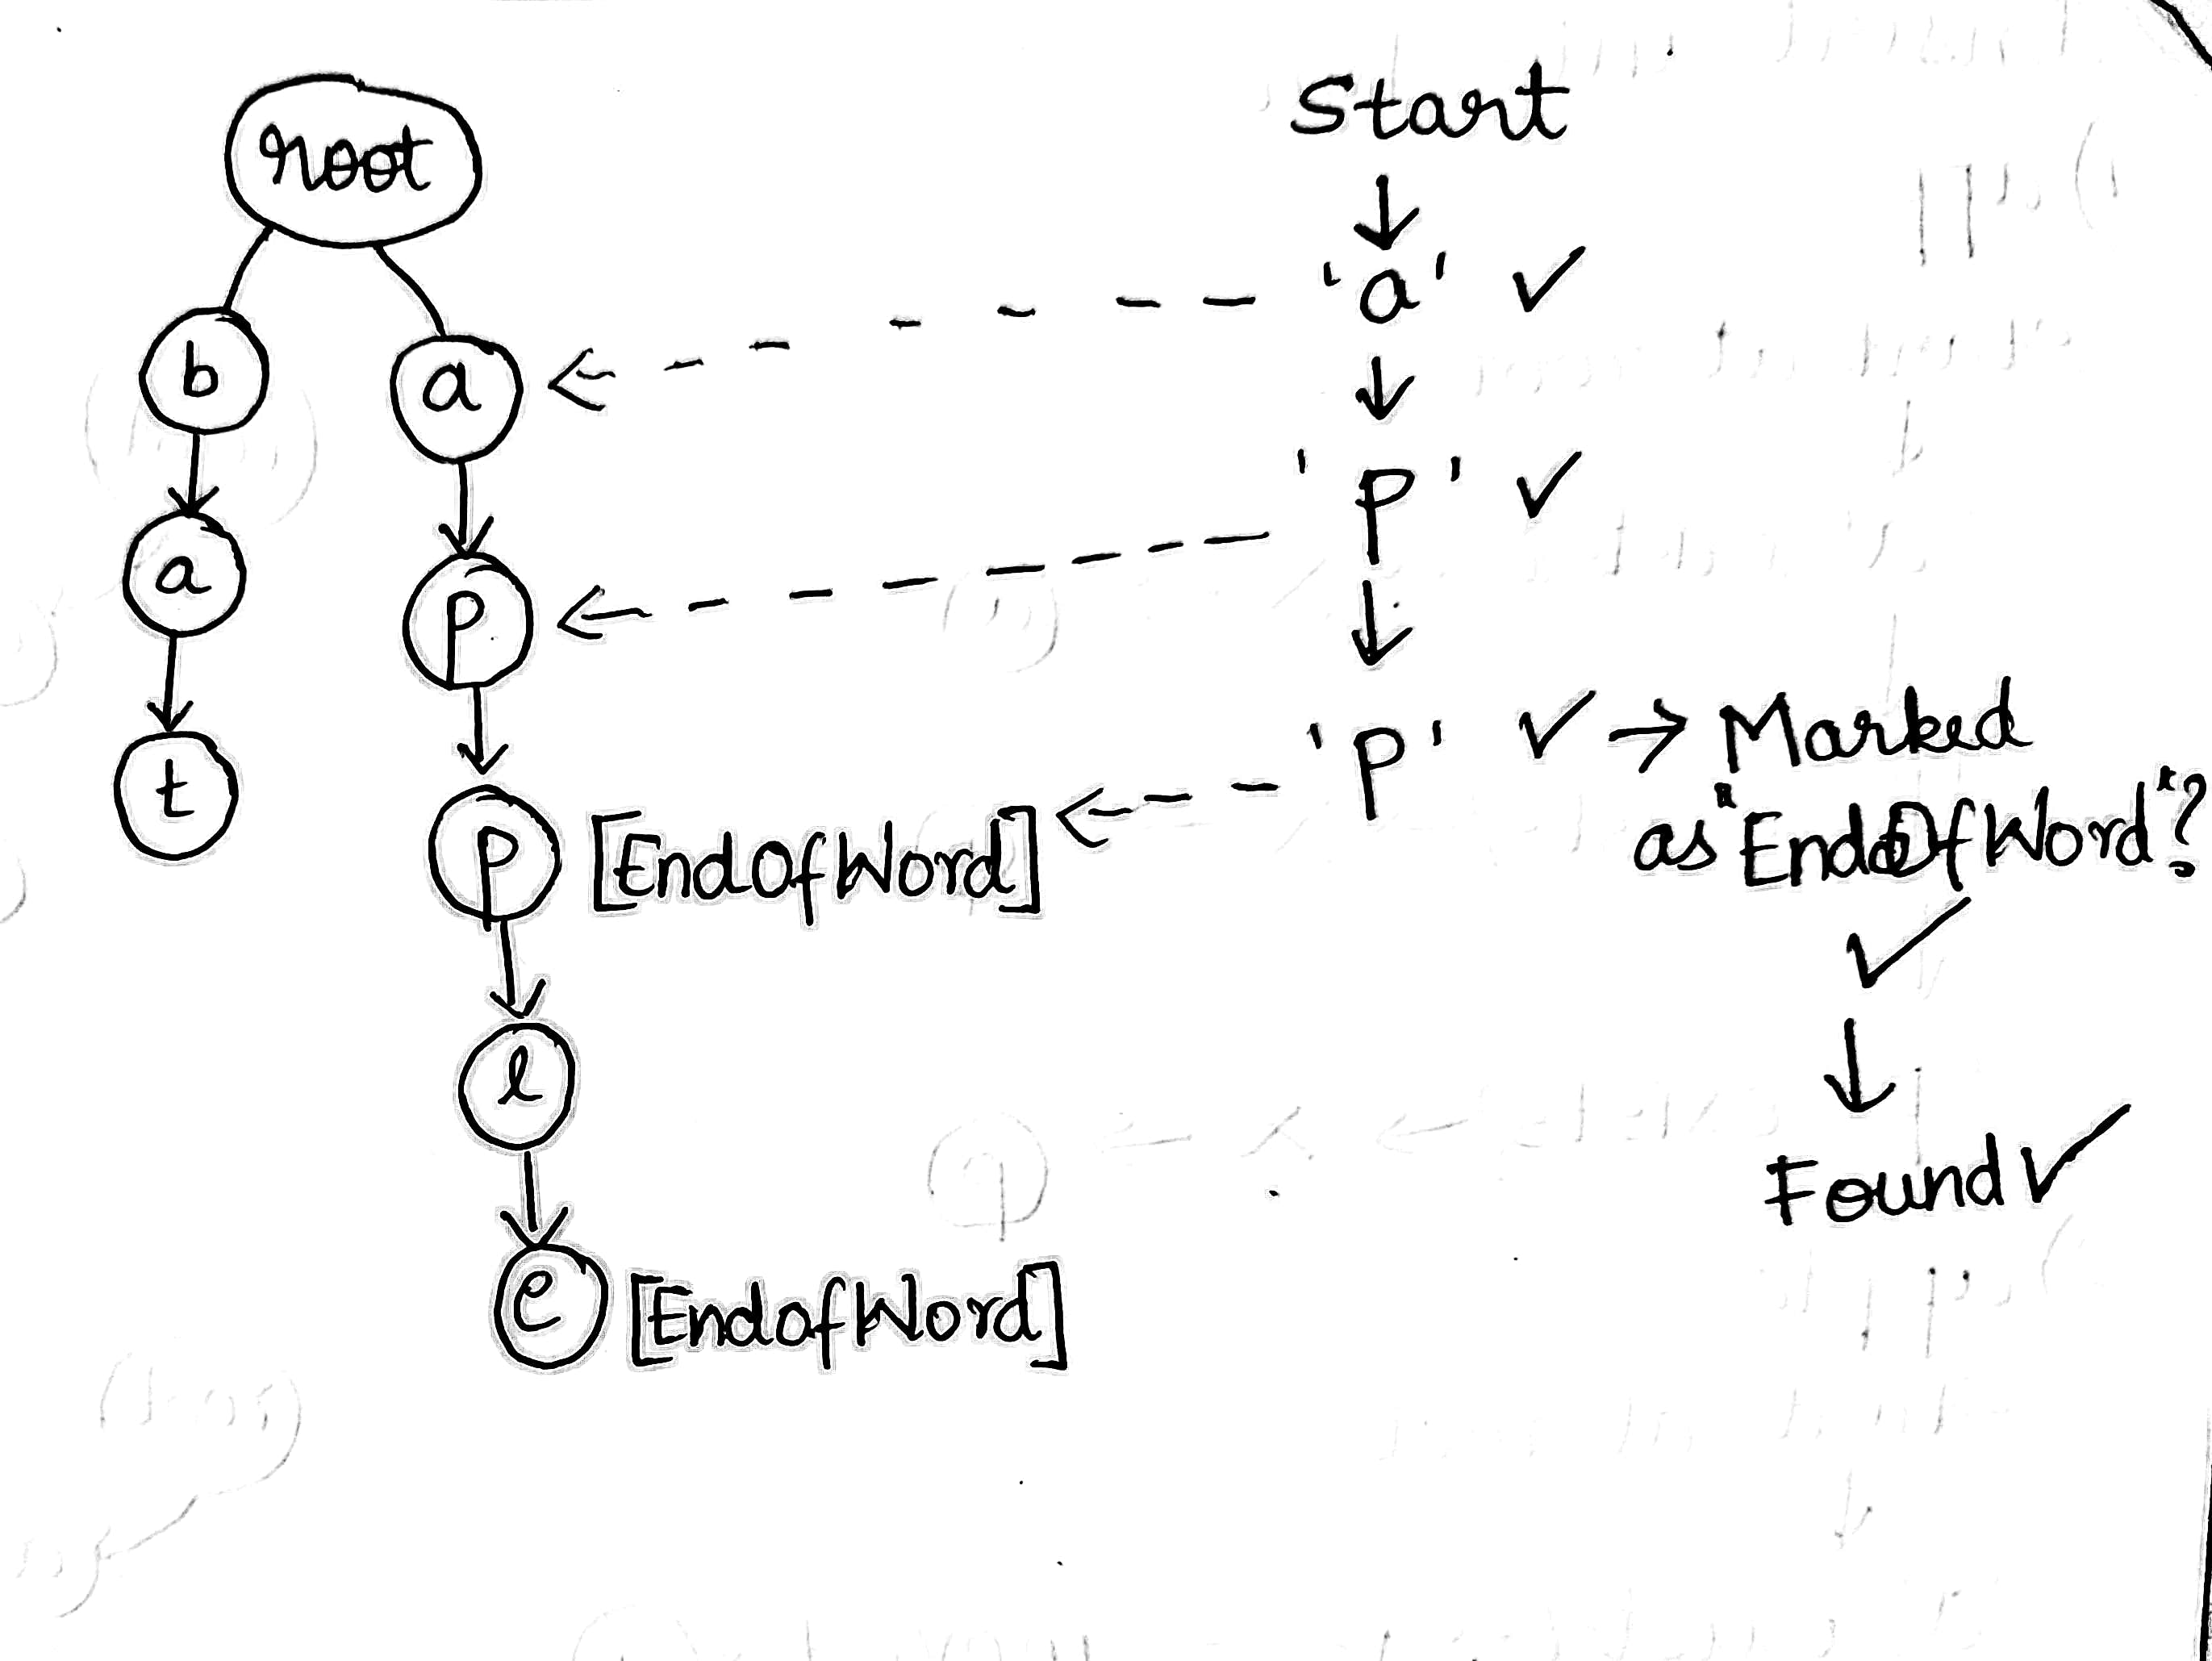 root
b
a
a
p
t
p [EndOfWord]
l
e [EndOfWord]
Start
'a' ✓
'P' ✓
'P' ✓ → Marked
as "EndOfWord"?
✓
Found ✓